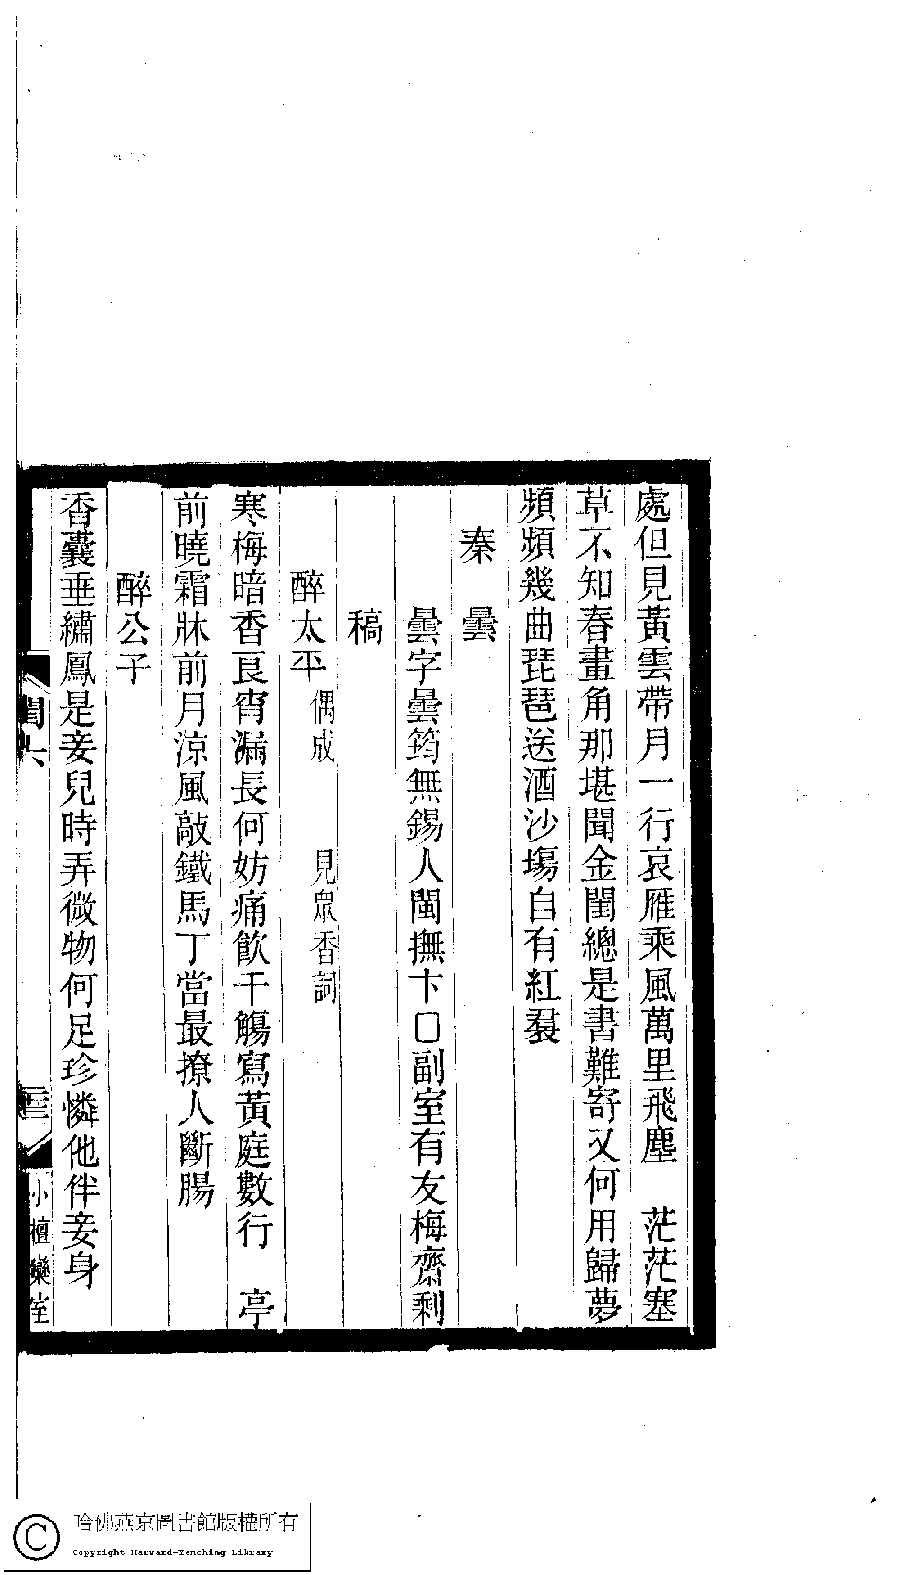 處但見黃雲帶月一行哀雁乘風萬里飛塵　茫茫塞
草不知春畫角那堪聞金閨總是書難寄又何用歸夢
頻頻幾曲琵琶送酒沙塲自有紅裠
秦曇
曇字曇筠無錫人閩撫卞囗副室有友梅齋剩
稿
醉太平 偶成　見眾香詞
寒梅暗香良宵漏長何妨痛飲千觴寫黃庭數行　亭
前曉霜牀前月涼風敲鐵馬丁當最撩人斷腸
醉公子
香囊垂繡鳳是妾兒時弄微物何足珍憐他伴妾身
閨六
小檀欒室
哈佛燕京圖書館版權所有
Copyright Harvard-Yenching Library